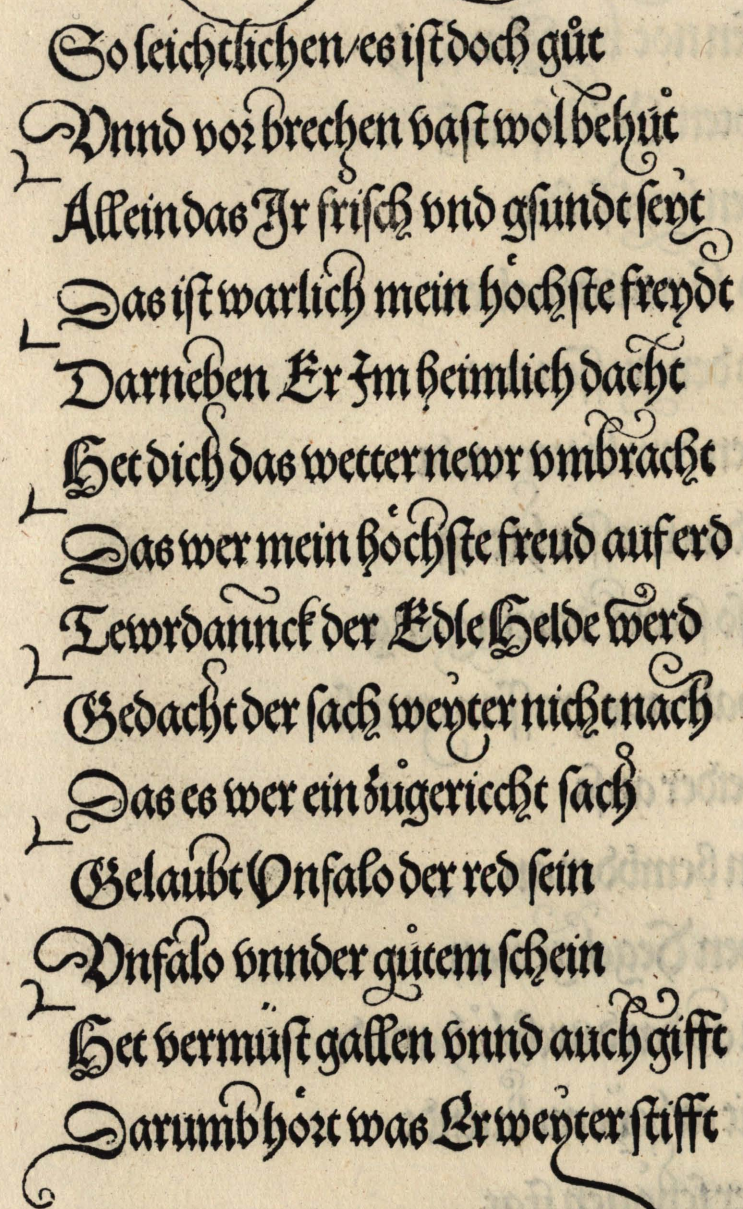 So leichtlichen/es ist doch gůt
Vnnd vor brechen vast wol behůt
Allein das Jr frisch vnd gsundt seyt
Das ist warlich mein höchste freydt
Darneben Er Im heimlich dacht
Het dich das wetter newr vmbracht
Das wer mein höchste freud auf erd
Tewrdannck der Edle Helde werd
Gedacht der sach weyter nicht nach
Das es wer ein zůgericcht sach
Gelaubt Vnfalo der red sein
Vnfalo vnnder gůtem schein
Het vermüst gallen vnnd auch gifft
Darumb hört was Er weyter stifft